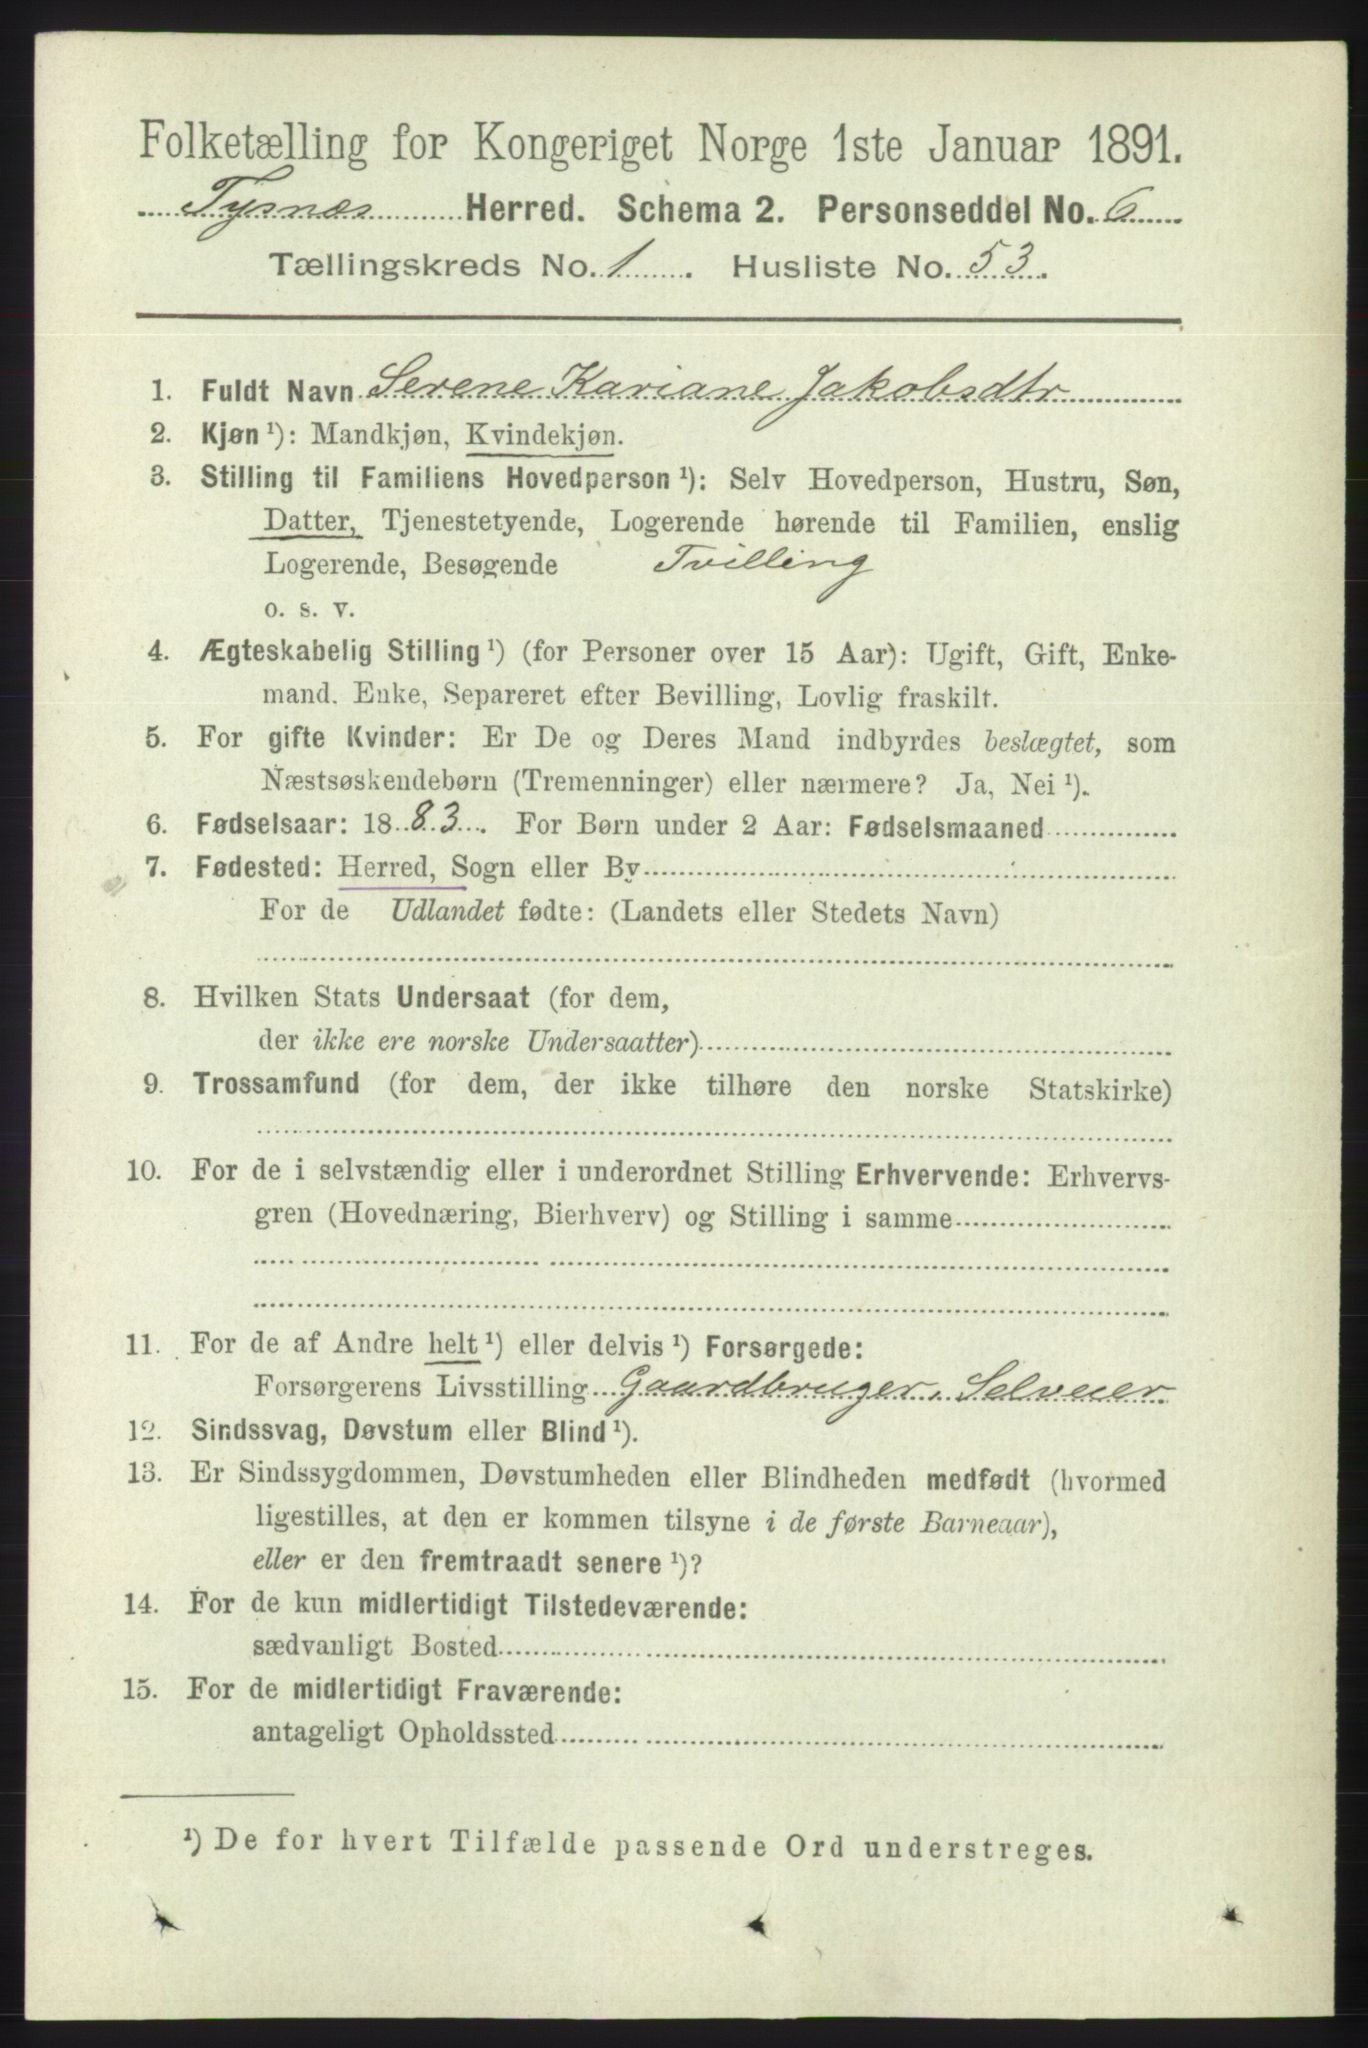 Folketælling for Kongeriget Norge 1ste Januar 1891.
Tysnæs Herred. Schema 2. Personseddel No. 6
Tællingskreds No. 1. Husliste No. 53.
1. Fuldt Navn Serene Kariane Jakobsdtr
2. Kjøn ¹): Mandkjøn, Kvindekjøn.
3. Stilling til Familiens Hovedperson ¹): Selv Hovedperson, Hustru, Søn,
Datter, Tjenestetyende, Logerende hørende til Familien, enslig
Logerende, Besøgende Tvilling
o. s. v.
4. Ægteskabelig Stilling ¹) (for Personer over 15 Aar): Ugift, Gift, Enke-
mand, Enke, Separeret efter Bevilling, Lovlig fraskilt.
5. For gifte Kvinder: Er De og Deres Mand indbyrdes beslægtet, som
Næstsøskendebørn (Tremenninger) eller nærmere? Ja, Nei ¹).
6. Fødselsaar: 1883. For Børn under 2 Aar: Fødselsmaaned
7. Fødested: Herred, Sogn eller By
For de Udlandet fødte: (Landets eller Stedets Navn)
8. Hvilken Stats Undersaat (for dem,
der ikke ere norske Undersaatter)
9. Trossamfund (for dem, der ikke tilhøre den norske Statskirke)
10. For de i selvstændig eller i underordnet Stilling Erhvervende: Erhvervs-
gren (Hovednæring, Bierhverv) og Stilling i samme
11. For de af Andre helt ¹) eller delvis ¹) Forsørgede:
Forsørgerens Livsstilling Gaardbruger, Selveier
12. Sindssvag, Døvstum eller Blind ¹).
13. Er Sindssygdommen, Døvstumheden eller Blindheden medfødt (hvormed
ligestilles, at den er kommen tilsyne i de første Barneaar),
eller er den fremtraadt senere ¹)?
14. For de kun midlertidigt Tilstedeværende:
sædvanligt Bosted
15. For de midlertidigt Fraværende:
antageligt Opholdssted
¹) De for hvert Tilfælde passende Ord understreges.